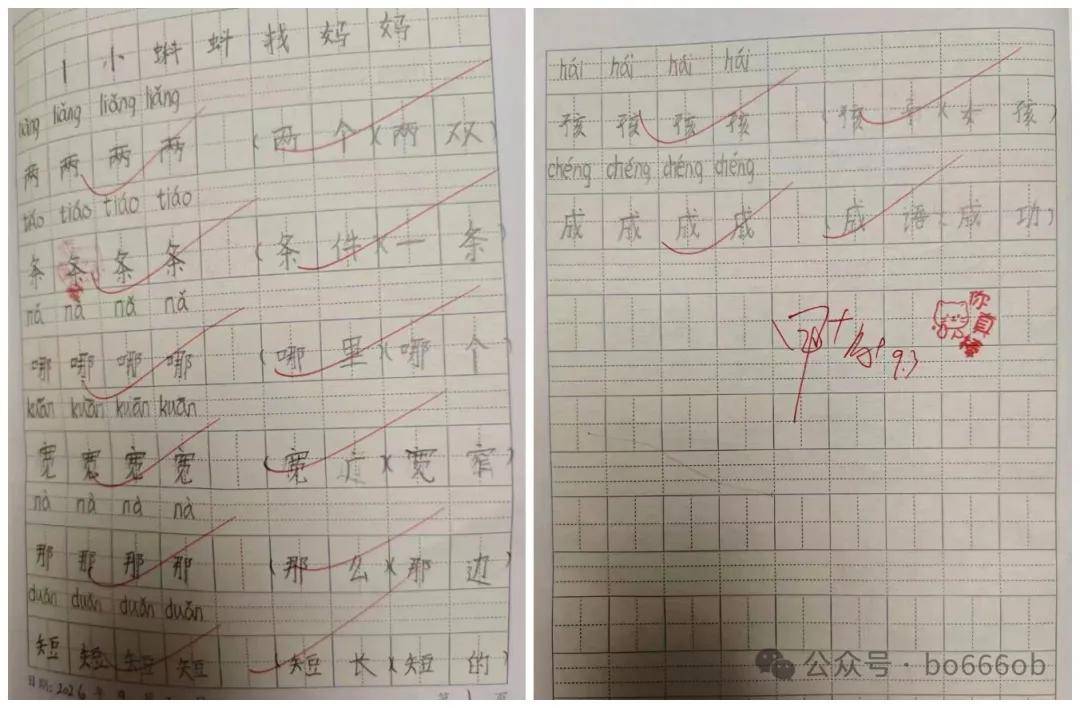 1 小 蝌 蚪 找 妈 妈
liǎng liǎng liǎng liǎng
两 两 两 两 (两 个)(两 双)
tiáo tiáo tiáo tiáo
条 条 条 条 (条 件)(一 条)
nǎ nǎ nǎ nǎ
哪 哪 哪 哪 (哪 里)(哪 个)
kuān kuān kuān kuān
宽 宽 宽 宽 (宽 道)(宽 窄)
nà nà nà nà
那 那 那 那 (那 么)(那 边)
duǎn duǎn duǎn duǎn
短 短 短 短 (短 长)(短 的)
日期: 2026 年 9 月
第 1 页
hái hái hái hái
孩 孩 孩 孩 (孩 子)(女 孩)
chéng chéng chéng chéng
成 成 成 成 (成 语)(成 功)
你真棒
9.3
公众号 · bo666ob